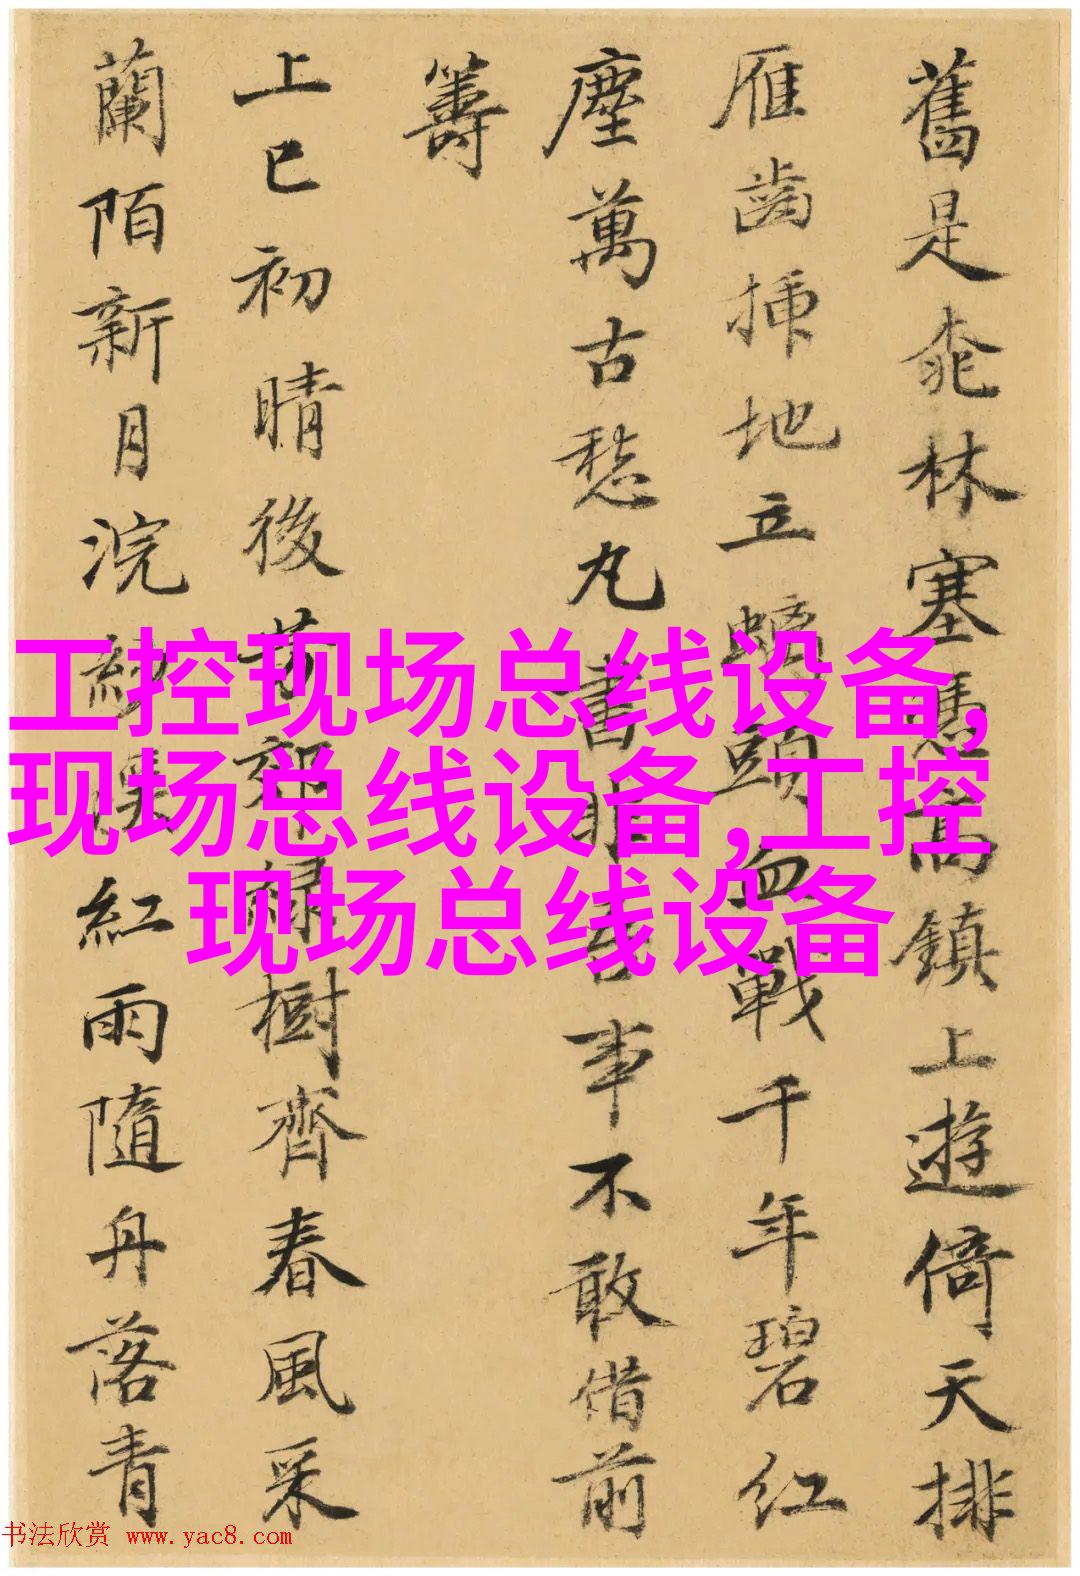 舊是桃林塞憑高鎮上遊倚天排
雁齒挿地立螭頭血戰千年碧紅
塵萬古愁丸書非吾事不敢借前
籌
上巳初晴後芳郊綠樹齊春風采
蘭陌新月浣紗溪紅雨隨舟落青
工控现场总线设备,
现场总线设备,工控
现场总线设备
书法欣赏 www.yac8.com